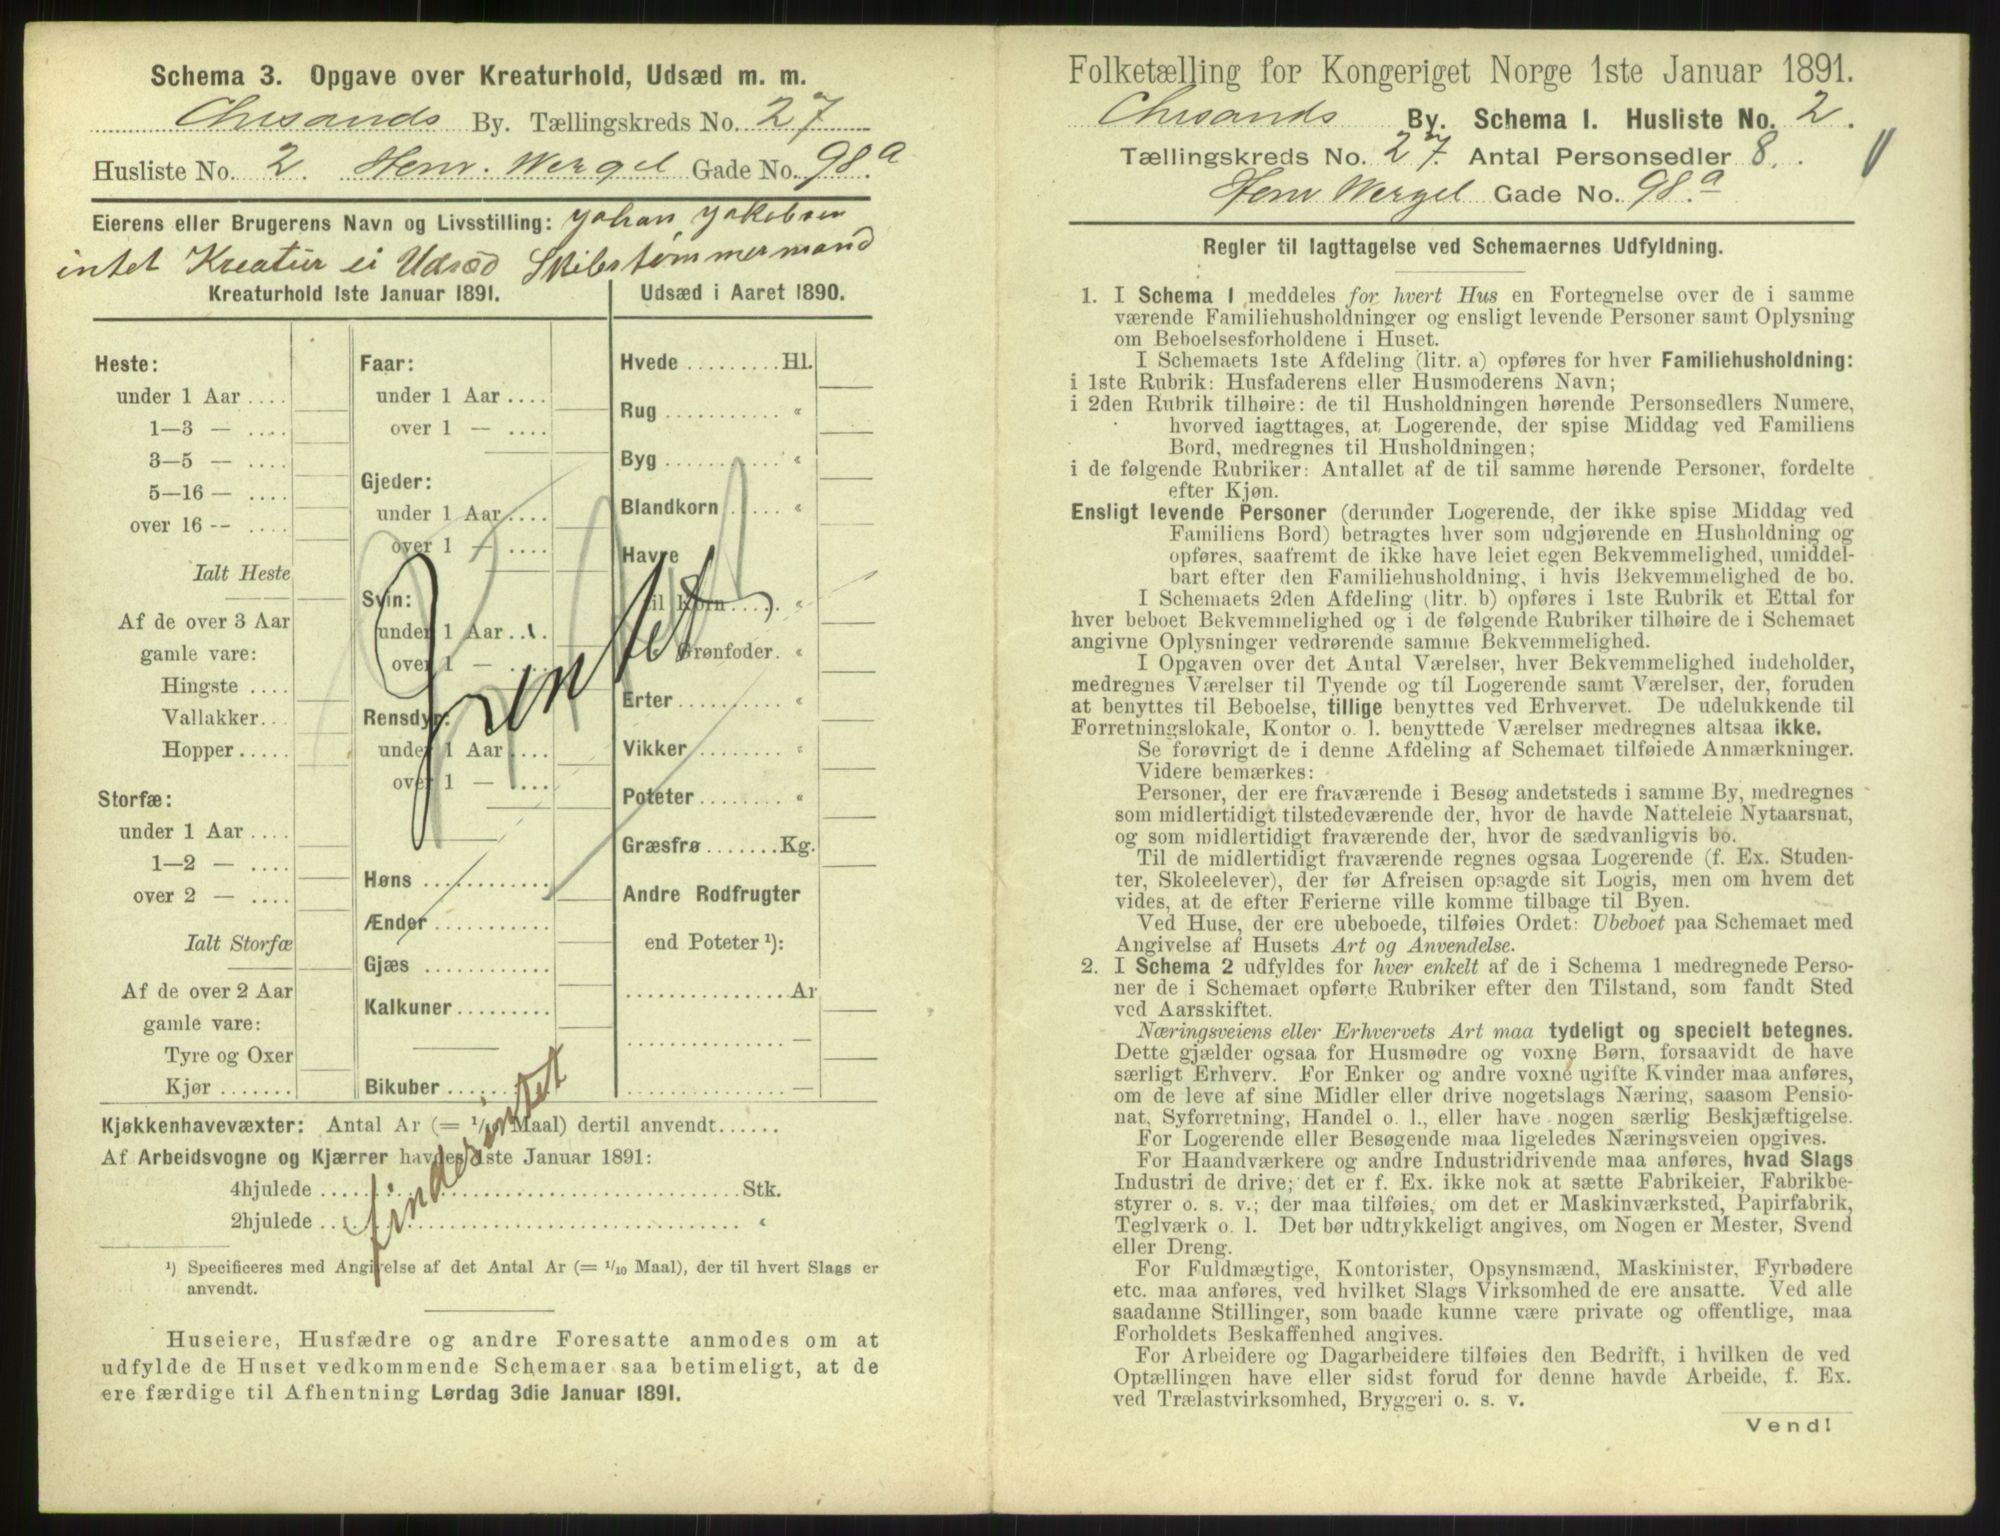 Schema 3. Opgave over Kreaturhold, Udsæd m. m.
Chrsands By. Tællingskreds No. 27
Husliste No. 2. Henr. Wergel Gade No. 98.a
Eierens eller Brugerens Navn og Livsstilling: Johan Jakobsen
intet Kreatur ei Udsæd Skibstømmermand
Kreaturhold 1ste Januar 1891.
Heste:
under 1 Aar ....
1—3 — ....
3—5 — ....
5—16 — ....
over 16 -- ....
Ialt Heste
Af de over 3 Aar
gamle vare:
Hingste ....
Vallakker...
Hopper.....
Storfæ:
under 1 Aar ....
1—2 — ....
over 2 — ....
Ialt Storfæ
Af de over 2 Aar
gamle vare:
Tyre og Oxer
Kjør .......
Faar:
under 1 Aar ....
over 1 — ....
Gjeder:
under 1 Aar ....
over 1 — ....
Svin:
under 1 Aar ....
over 1 — ....
Rensdyr:
under 1 Aar ....
over 1 — ....
Høns ............
Ænder ...........
Gjæs ............
Kalkuner .........
Bikuber ..........
Udsæd i Aaret 1890.
Hvede .........Hl.
Rug ........... "
Byg ........... "
Blandkorn ...... "
Havre
til Korn ...... "
Grønfoder. "
Erter .......... "
Vikker ......... "
Poteter ........ "
Græsfrø .......Kg.
Andre Rodfrugter
end Poteter ¹):
...............Ar
............... —
............... —
intet
Kjøkkenhavevæxter: Antal Ar (= 1/10 Maal) dertil anvendt......
Af Arbeidsvogne og Kjærrer havdes 1ste Januar 1891:
4hjulede ........................Stk.
2hjulede ........................ "
findes intet
¹) Specificeres med Angivelse af det Antal Ar (= 1/10 Maal), der til hvert Slags er
anvendt.
Huseiere, Husfædre og andre Foresatte anmodes om at
udfylde de Huset vedkommende Schemaer saa betimeligt, at de
ere færdige til Afhentning Lørdag 3die Januar 1891.
Folketælling for Kongeriget Norge 1ste Januar 1891.
Chrsands By. Schema I. Husliste No. 2.
Tællingskreds No. 27. Antal Personsedler 8.
Henr Wergel Gade No. 98.a
Regler til Iagttagelse ved Schemaernes Udfyldning.
1. I Schema 1 meddeles for hvert Hus en Fortegnelse over de i samme
værende Familiehusholdninger og ensligt levende Personer samt Oplysning
om Beboelsesforholdene i Huset.
I Schemaets 1ste Afdeling (litr. a) opføres for hver Familiehusholdning:
i 1ste Rubrik: Husfaderens eller Husmoderens Navn;
i 2den Rubrik tilhøire: de til Husholdningen hørende Personsedlers Numere,
hvorved iagttages, at Logerende, der spise Middag ved Familiens
Bord, medregnes til Husholdningen;
i de følgende Rubriker: Antallet af de til samme hørende Personer, fordelte
efter Kjøn.
Ensligt levende Personer (derunder Logerende, der ikke spise Middag ved
Familiens Bord) betragtes hver som udgjørende en Husholdning og
opføres, saafremt de ikke have leiet egen Bekvemmelighed, umiddel-
bart efter den Familiehusholdning, i hvis Bekvemmelighed de bo.
I Schemaets 2den Afdeling (litr. b) opføres i 1ste Rubrik et Ettal for
hver beboet Bekvemmelighed og i de følgende Rubriker tilhøire de i Schemaet
angivne Oplysninger vedrørende samme Bekvemmelighed.
I Opgaven over det Antal Værelser, hver Bekvemmelighed indeholder,
medregnes Værelser til Tyende og til Logerende samt Værelser, der, foruden
at benyttes til Beboelse, tillige benyttes ved Erhvervet. De udelukkende til
Forretningslokale, Kontor o. l. benyttede Værelser medregnes altsaa ikke.
Se forøvrigt de i denne Afdeling af Schemaet tilføiede Anmærkninger.
Videre bemærkes:
Personer, der ere fraværende i Besøg andetsteds i samme By, medregnes
som midlertidigt tilstedeværende der, hvor de havde Natteleie Nytaarsnat,
og som midlertidigt fraværende der, hvor de sædvanligvis bo.
Til de midlertidigt fraværende regnes ogsaa Logerende (f. Ex. Studen-
ter, Skoleelever), der før Afreisen opsagde sit Logis, men om hvem det
vides, at de efter Ferierne ville komme tilbage til Byen.
Ved Huse, der ere ubeboede, tilføies Ordet: Ubeboet paa Schemaet med
Angivelse af Husets Art og Anvendelse.
2. I Schema 2 udfyldes for hver enkelt af de i Schema 1 medregnede Perso-
ner de i Schemaet opførte Rubriker efter den Tilstand, som fandt Sted
ved Aarsskiftet.
Næringsveiens eller Erhvervets Art maa tydeligt og specielt betegnes.
Dette gjælder ogsaa for Husmødre og voxne Børn, forsaavidt de have
særligt Erhverv. For Enker og andre voxne ugifte Kvinder maa anføres,
om de leve af sine Midler eller drive nogetslags Næring, saasom Pensio-
nat, Syforretning, Handel o. l., eller have nogen særlig Beskjæftigelse.
For Logerende eller Besøgende maa ligeledes Næringsveien opgives.
For Haandværkere og andre Industridrivende maa anføres, hvad Slags
Industri de drive; det er f. Ex. ikke nok at sætte Fabrikeier, Fabrikbe-
styrer o. s. v.; der maa tilføies, om det er Maskinværksted, Papirfabrik,
Teglværk o. l. Det bør udtrykkeligt angives, om Nogen er Mester, Svend
eller Dreng.
For Fuldmægtige, Kontorister, Opsynsmænd, Maskinister, Fyrbødere
etc. maa anføres, ved hvilket Slags Virksomhed de ere ansatte. Ved alle
saadanne Stillinger, som baade kunne være private og offentlige, maa
Forholdets Beskaffenhed angives.
For Arbeidere og Dagarbeidere tilføies den Bedrift, i hvilken de ved
Optællingen have eller sidst forud for denne havde Arbeide, f. Ex.
ved Trælastvirksomhed, Bryggeri o. s. v.
Vend!